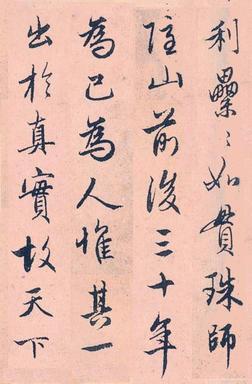 利纍〻如貫珠師
住山前後三十年
為己為人惟其一
出於真實故天下